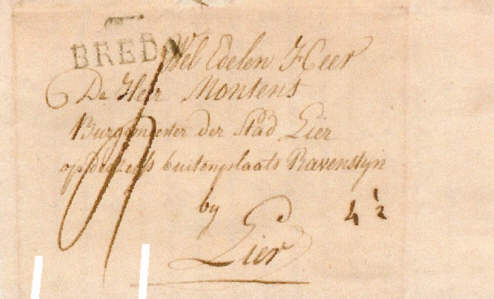 BREDA
Wel Edelen Heer
De Heer Montens
Burgemeester der Stad Lier
buitenplaats Ravenstyn
by
4 1/2
Lier